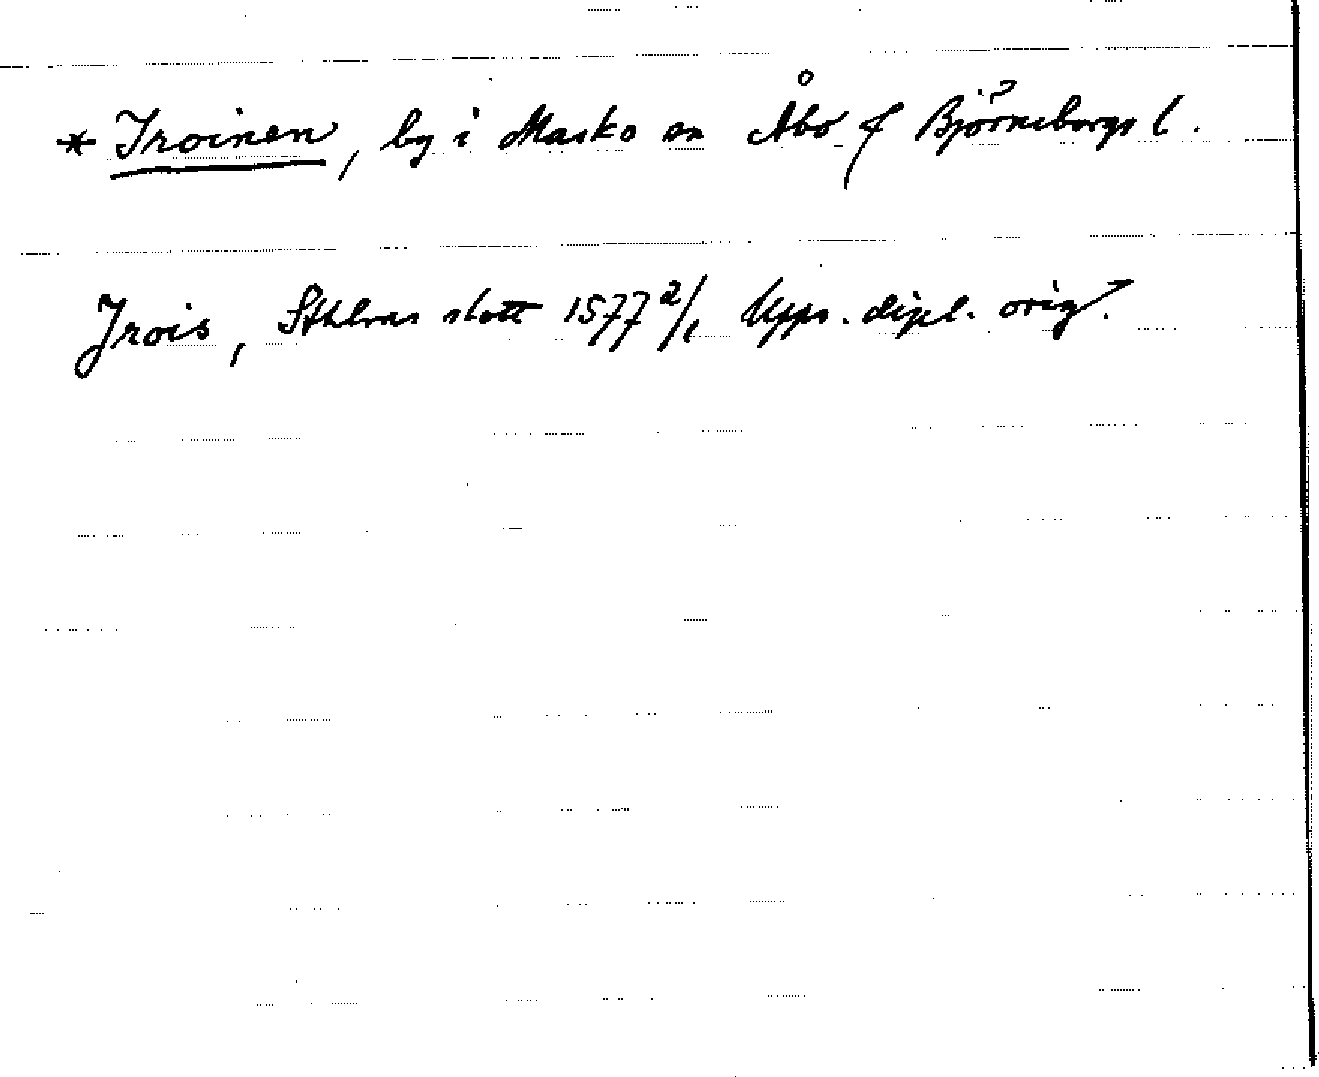 * Iroinen, by i Masko sn Åbo o Björneborgs l.
Irois, Sthlms slott 1577 2/1 Upps. dipl. orig.